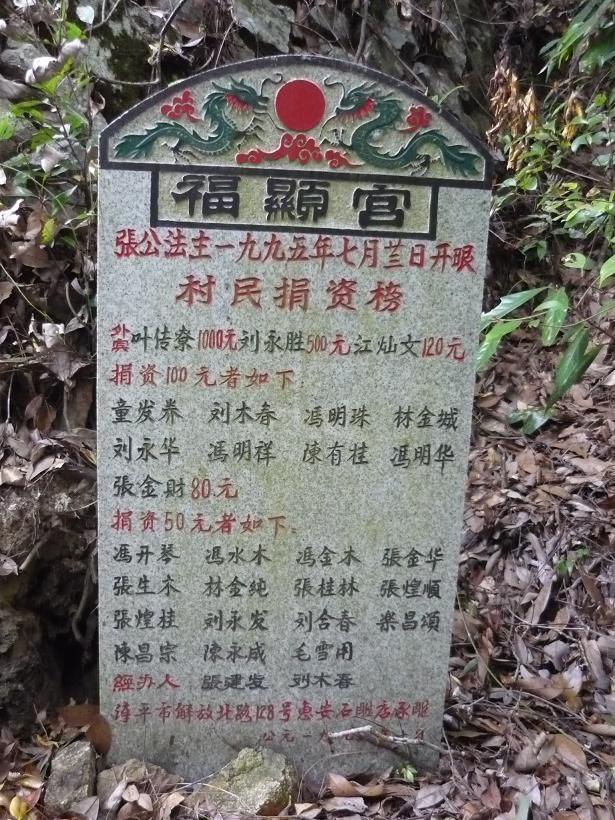 福顯宮
張公法主一九九五年七月廿三日开眼
村民捐资榜
叶传寮1000元刘永胜500元江灿文120元
捐资100元者如下:
童发养 刘木春 馮明珠 林金城
刘永华 馮明祥 陳有桂 馮明华
張金財80元
捐资50元者如下:
馮开琴 馮水木 馮金木 張金华
張生木 林金纯 張桂林 張煌順
張煌桂 刘永发 刘合春 楽昌頌
陳昌宗 陳永咸 毛雪用
經办人 張建发 刘木春
漳平市解放北路128号惠安石雕店承雕
公元一九